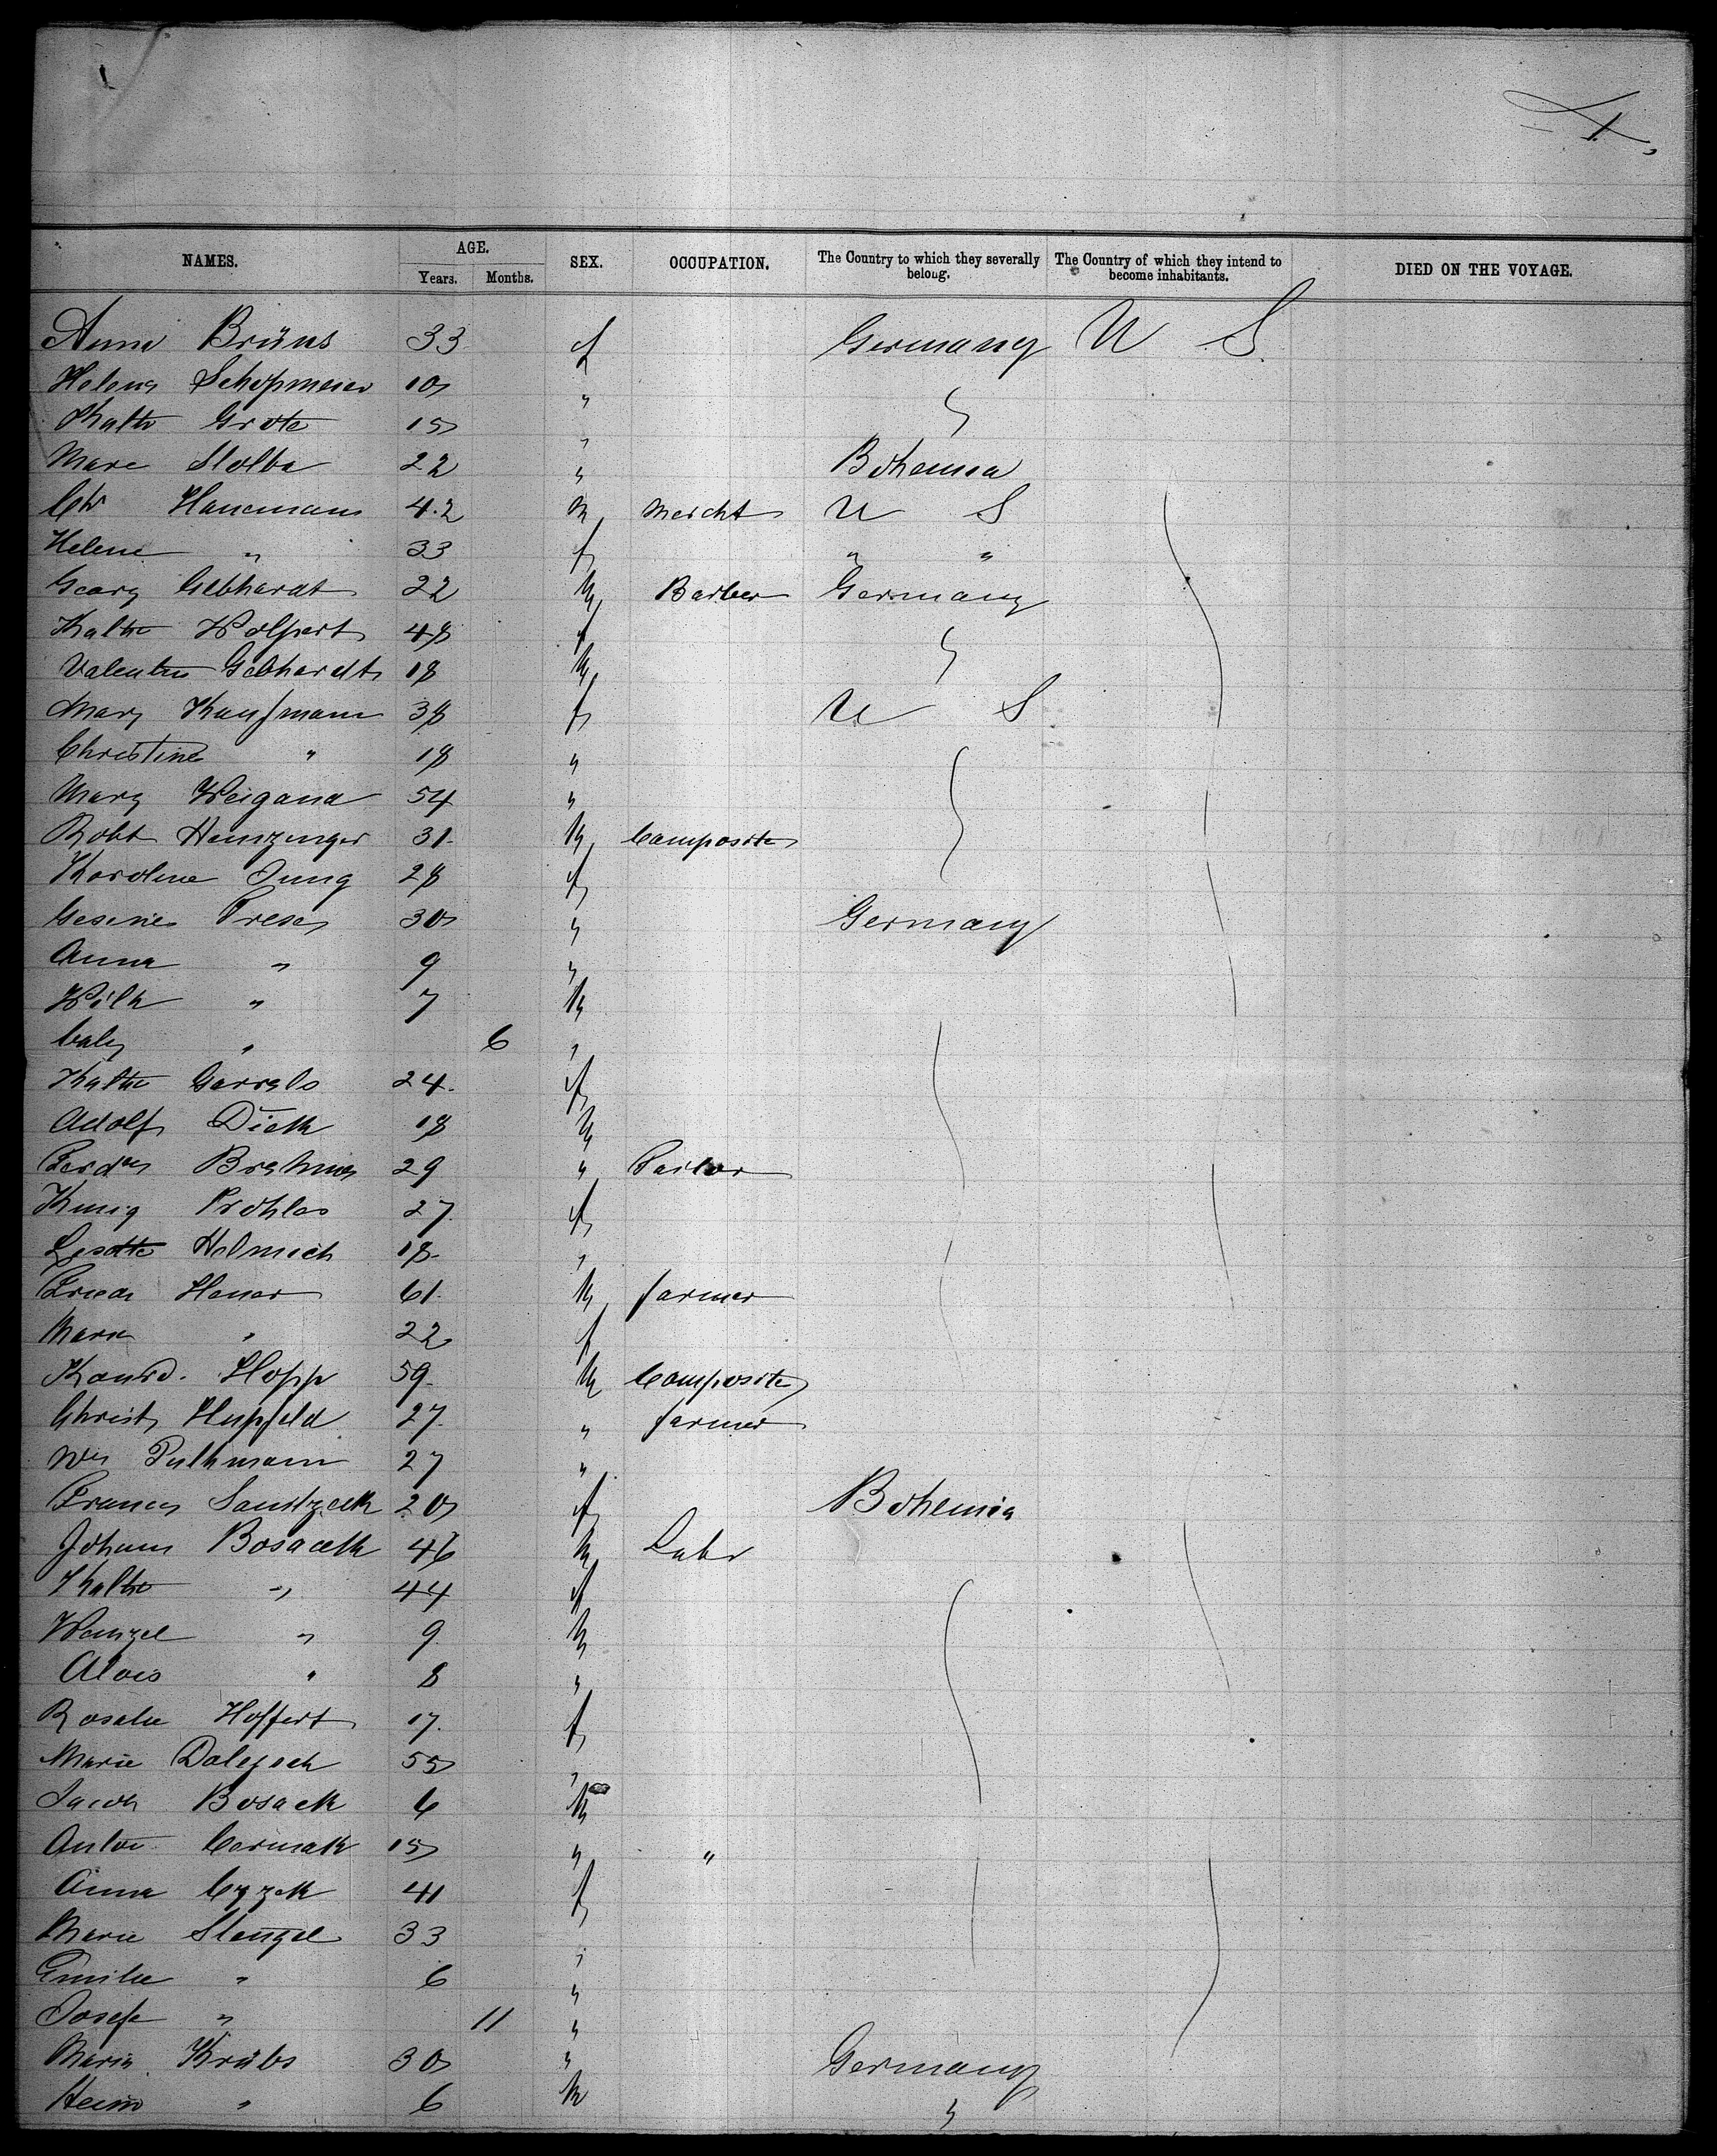 1.
NAMES. AGE. Years. Months. SEX. OCCUPATION. The Country to which they severally belong. The Country of which they intend to become inhabitants. DIED ON THE VOYAGE.
Anna Brüns 33 f Germany U S
Helena Schopmeier 10 "
Kathe Grote 15 "
Marie Stolba 22 " Bohemia
Chr Hanemann 42 m Mercht U S
Helene " 33 f " "
Georg Gebhardt 22 m Barber Germany
Kathe Wolpert 48 f
Valentin Gebhardt 18 m
Mary Kaufmann 38 f U S
Christine " 18 "
Mary Weigand 54 "
Robt Heinzinger 31 m Composite
Karoline Jung 28 f
Gesine Frese 30 " Germany
Anna " 9 "
Wilh " 7 m
baby " 6 "
Kathe Garrels 24 f
Adolf Dick 18 m
Ferdn Brahms 29 " Tailor
Kunig Prohlas 27 f
Lisette Helmich 18 "
61 m farmer
Maria " 22 f
Konrd. Hopp 59 m Composite
Christ Hupfeld 27 " farmer
Wm Puthmann 27 "
20 f Bohemia
Johann Bosaceck 46 m Labr
Kathe " 44 f
Wenzel " 9 m
Alois " 8 "
Rosalie Hoffert 17 f
Marie 55 "
Jacob Bosack 6 m
Anton Cermak 15 " "
Anna 41 f
Marie Stengel 33 "
Emilie " 6 "
Josefa " 11 "
Maria Krübs 30 " Germany
Heinr " 6 m "